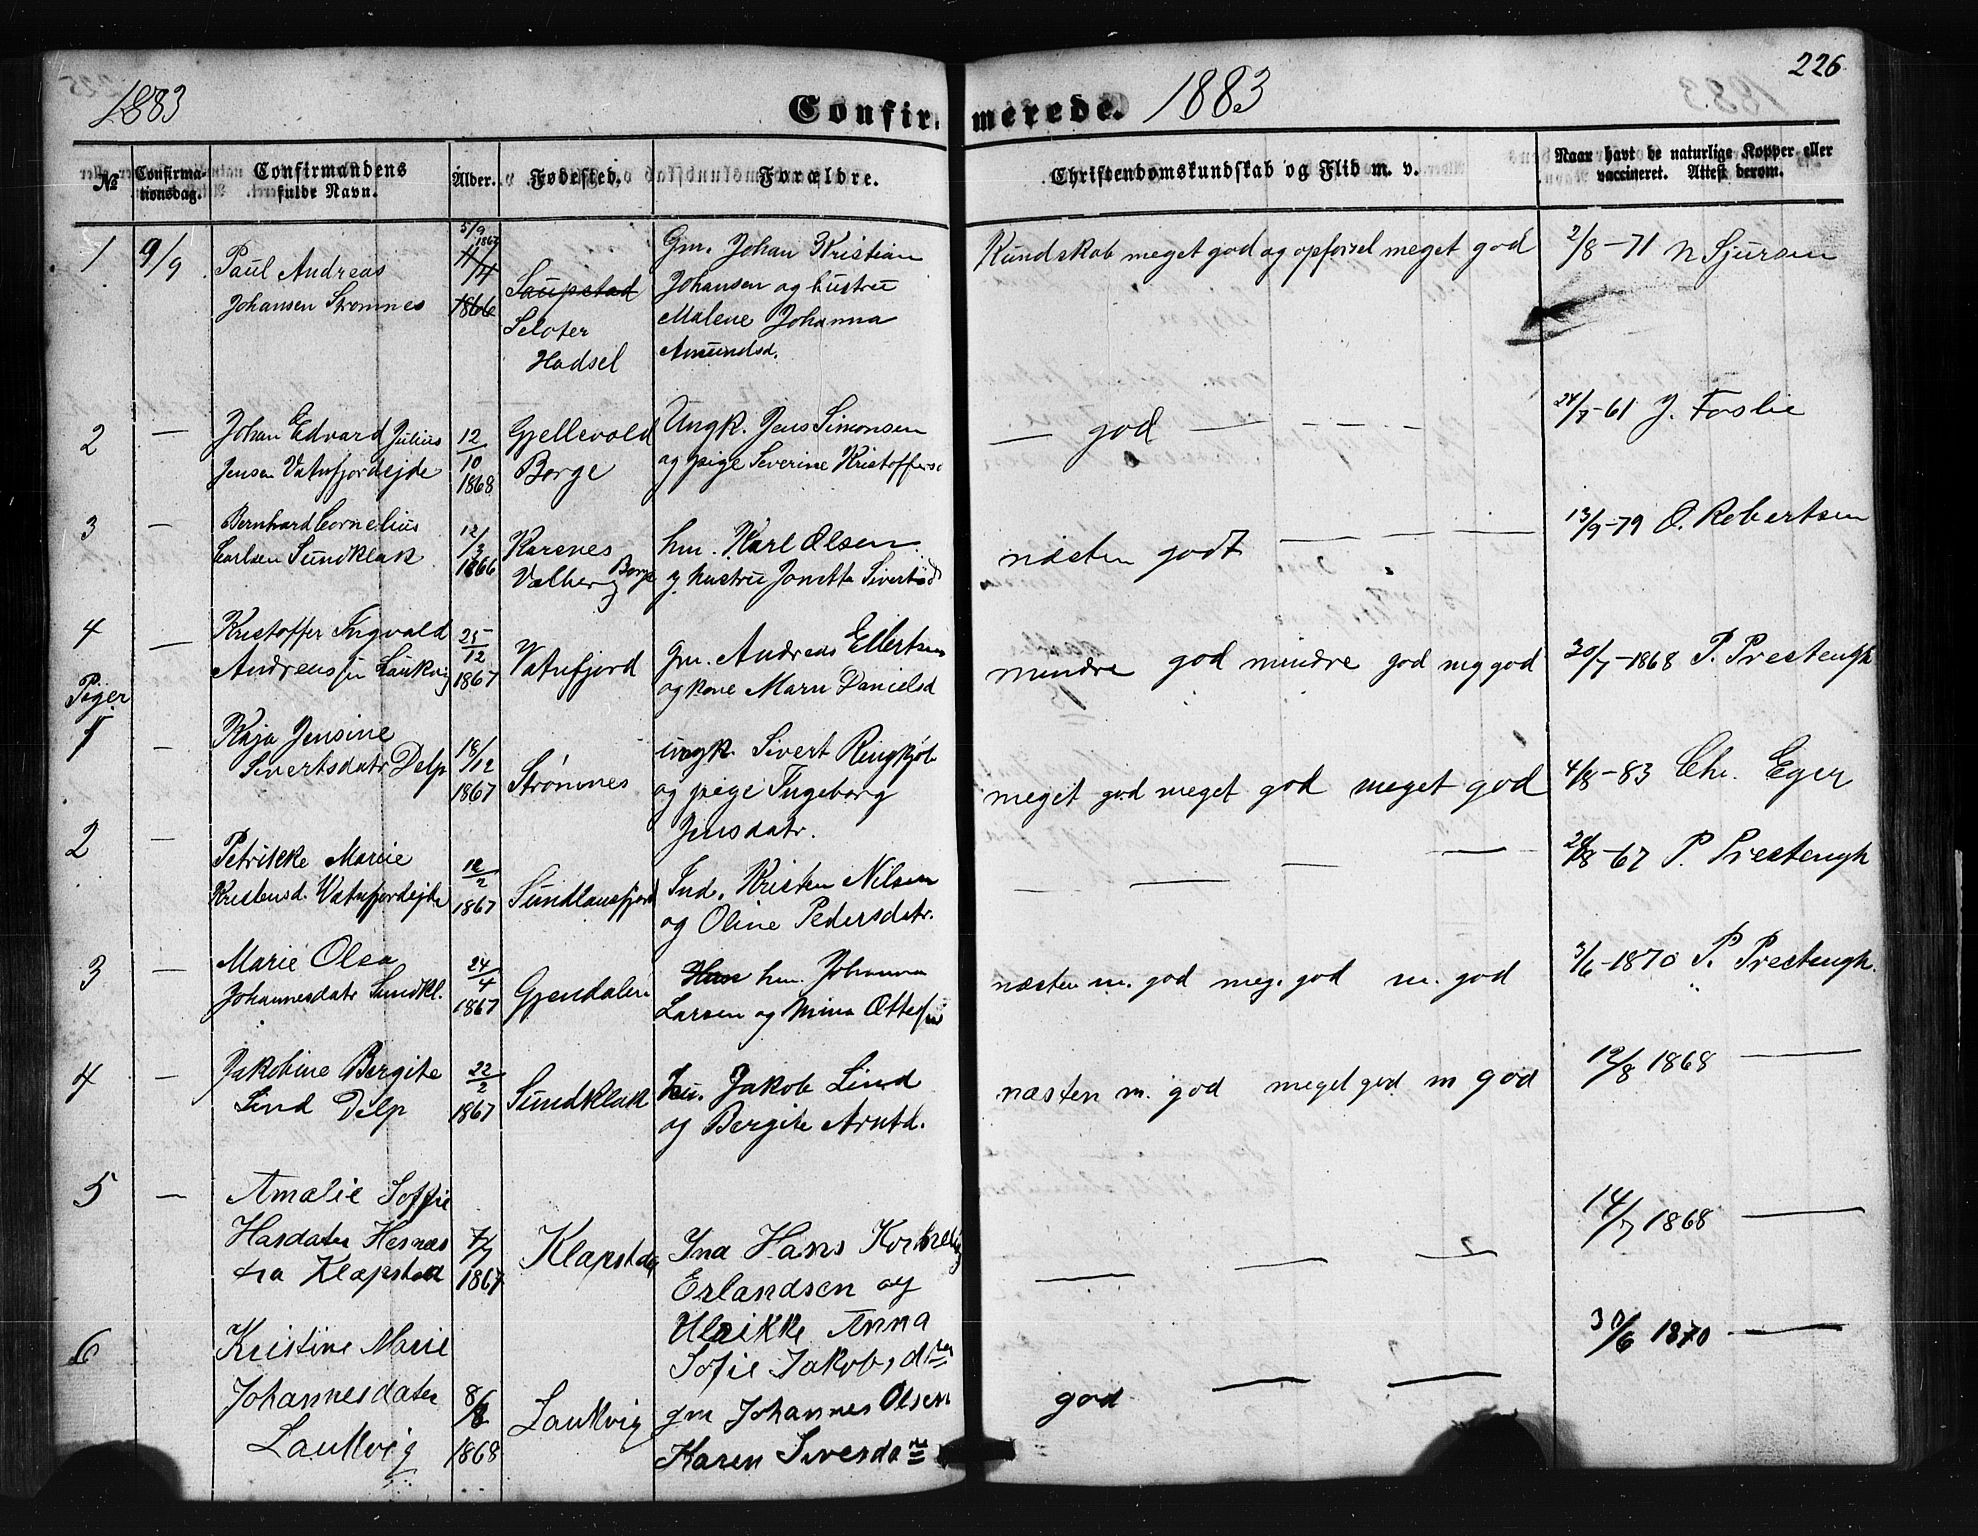 226
1883
Confirmerede. 1883
№
Confirma-
tionsdag.
Confirmandens
fulde Navn.
Alder.
Fødested.
Forældre.
Christendomskundskab og Flid m. v.
Naar havt de naturlige Kopper eller
vaccineret. Attest derom.
1 9/9
Paul Andreas
Johansen Strømnes
5/9
1867
11/4
1866
Saupstad
Seloter
Hadsel
Gm. Johan Kristian
Johansen og hustru
Malene Johanna
Amundsd.
Kundskab meget god og opførsel meget god
2/8-71 N Sjursen
2 —
Johan Edvard Julius
Jensen Vatnfjordejde
12
10
1868
Gjellevold
Borge
Ungk. Jens Simonsen
og pige Severine Kristoffers
— god — — — —
24/7-61 J. Foslie
3 —
Bernhard Cornelius
Carlsen Sundklak
12/3
1866
Karenes
Valberg Borge
hm. Karl Olsen
og hustru Jonetta Sivertsd
næsten godt — — — —
13/9-79 O. Robertsen
4 —
Kristoffer Ingvald
Andreassen Laukvig
25
12
1867
Vatnfjord
gm. Andreas Ellertsen
og kone Marn Danielsd
mindre god mindre god mg god
20/7-1868 P. Prestengh
Piger
1 —
Kaja Jensine
Sivertsdatr Delp
18/12
1867
Strømnes
ungk. Sivert Ringkjøb
og pige Ingeborg
Jensdatr.
meget god meget god meget god
4/8-83 Chr. Eger
2 —
Petrikke Marie
Kristensd. Vatnfjordejde
12
2
1867
Sundlandsfjord
Ind. Kristen Nilsen
og Oline Pedersdatr.
— — — —
28/8-67 P. Prestengh
3 —
Marie Olea
Johannesdatr Sundkl.
24
4
1867
Gjendalen
hm. Johannes
Larsen og Mina Ottesen
næsten m. god meg. god m. god
3/6-1870 P. Prestengh.
4 —
Jakobine Bergite
Lind Delp
22
2
1867
Sundklak
Jakob Lind
og Bergite Arntd.
næsten m. god meget god m god
12/8 1868 —
5 —
Amalie Soffie
Hasdater Hesnæs
fra Klapstad
1867
Klapstad
Ina Hans Kornelius
Erlandsen og
Ulrikke Anna
Sofie Jakobsd
— — —
14/7 1868 —
6
Kristine Marie
Johannesdater
Laukvig
8/8
1868
Laukvig
gm Johannes Olsen
Karen Siversda
god — —
30/6 1870 —